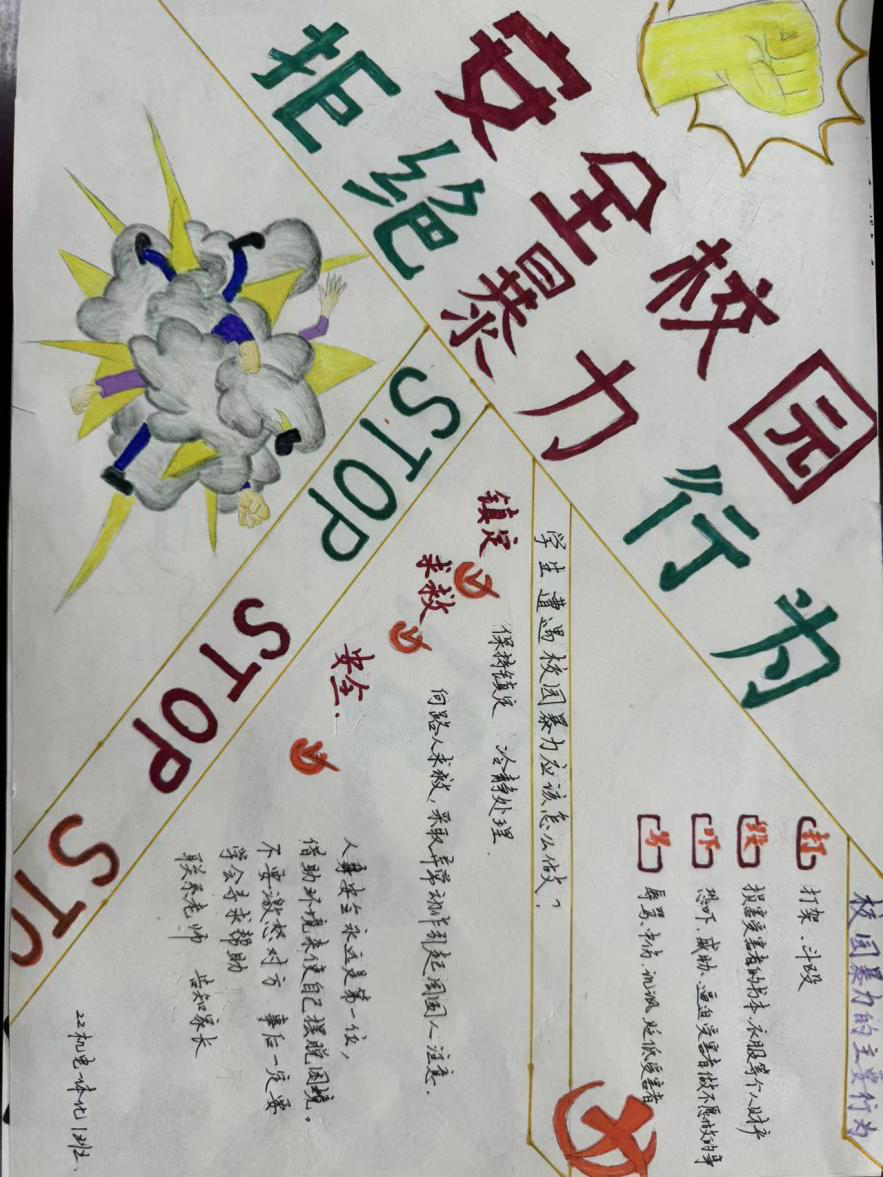 安全校园
拒绝暴力行为
STOP
STOP
STO
校园暴力的主要行为
打 打架、斗殴
毁 损害受害者的书本、衣服等个人财产
吓 恐吓、威胁、逼迫受害者做不愿做的事
骂 辱骂、中伤、讥讽、贬低受害者
学生遭遇校园暴力应该怎么做？
镇定
保持镇定 冷静处理.
求救
向路人求救，采取异常动作引起周围人注意.
安全.
人身安全永远是第一位，
借助环境来使自己摆脱困境。
不要激怒对方 事后一定要
学会寻求帮助
联系老师 告知家长
22机电一体化1班